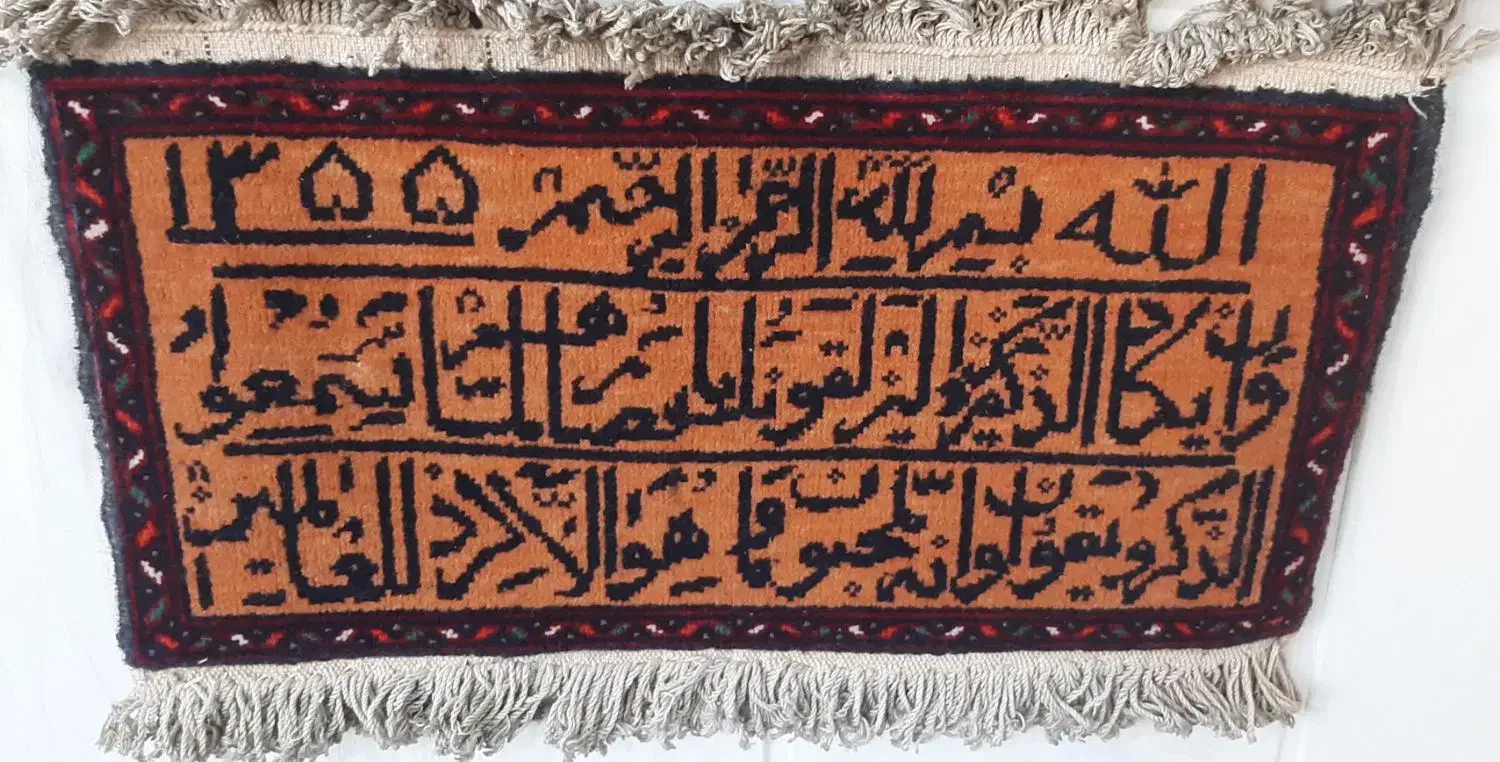 الله بسم الله الرحمن الرحیم ۱۳۵۵
وان یکاد الذین کفروا لیزلقونک بابصارهم لما سمعوا
الذکر ویقولون انه لمجنون وما هو الا ذکر للعالمین